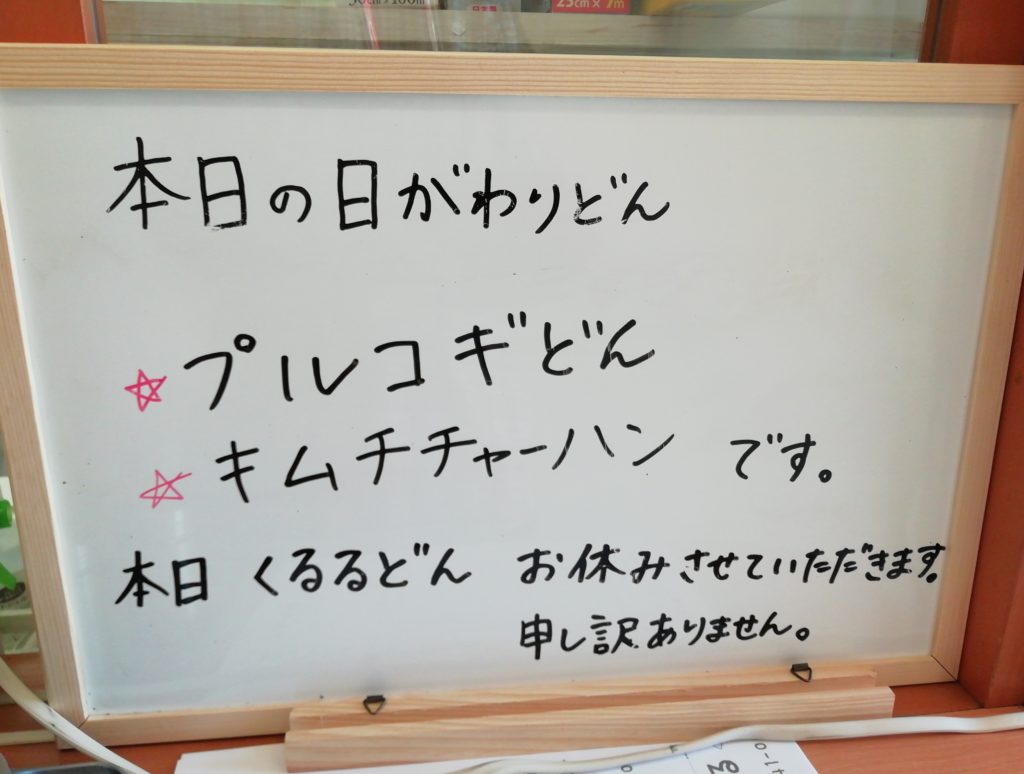 30cm×100m
日本製
25cm×7m
本日の日がわりどん
☆プルコギどん
☆キムチチャーハン です。
本日 くるるどん お休みさせていただきます。
申し訳ありません。